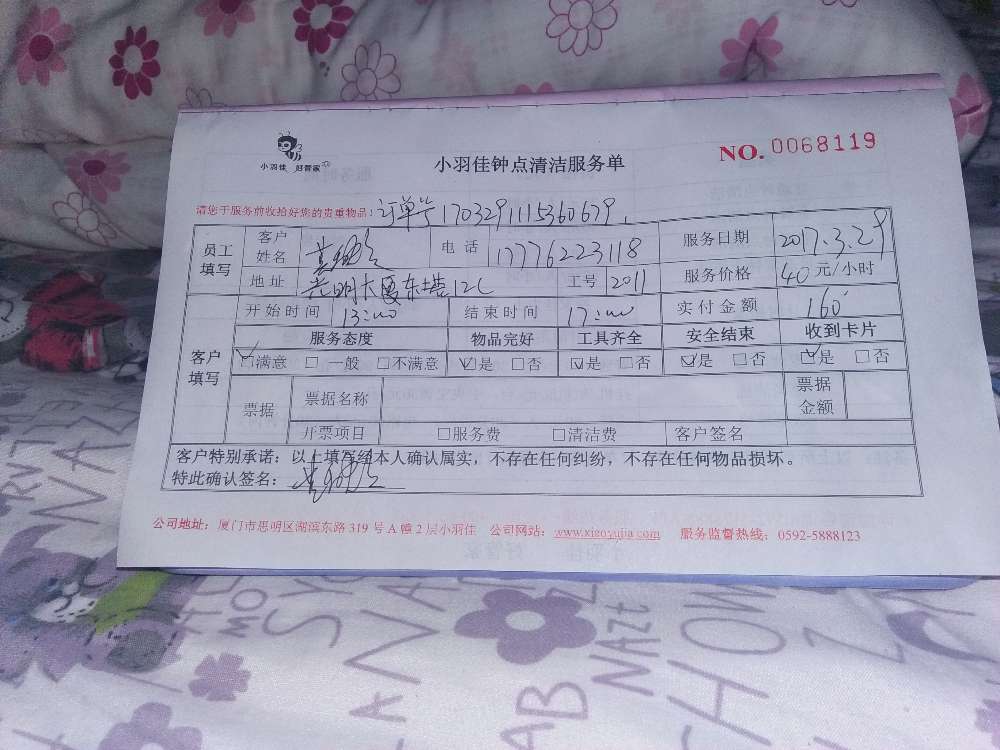 小羽佳 好管家
小羽佳钟点清洁服务单
NO. 0068119
请您于服务前收拾好您的贵重物品! 订单号1703291115360679.
员工填写 客户姓名 电话 17776223118 服务日期 2017.3.29
地址 光明大厦东塔12C 工号 2011 服务价格 40元/小时
客户填写 开始时间 13:00 结束时间 17:00 实付金额 160
服务态度 物品完好 工具齐全 安全结束 收到卡片
☑满意 □ 一般 □不满意 ☑是 □否 ☑是 □否 ☑是 □否 ☑是 □否
票据 票据名称 票据金额
开票项目 □服务费 □清洁费 客户签名
客户特别承诺:以上填写经本人确认属实,不存在任何纠纷,不存在任何物品损坏。
特此确认签名:
公司地址:厦门市思明区湖滨东路 319 号 A 幢 2 层小羽佳 公司网站:www.xiaoyujia.com 服务监督热线:0592-5888123